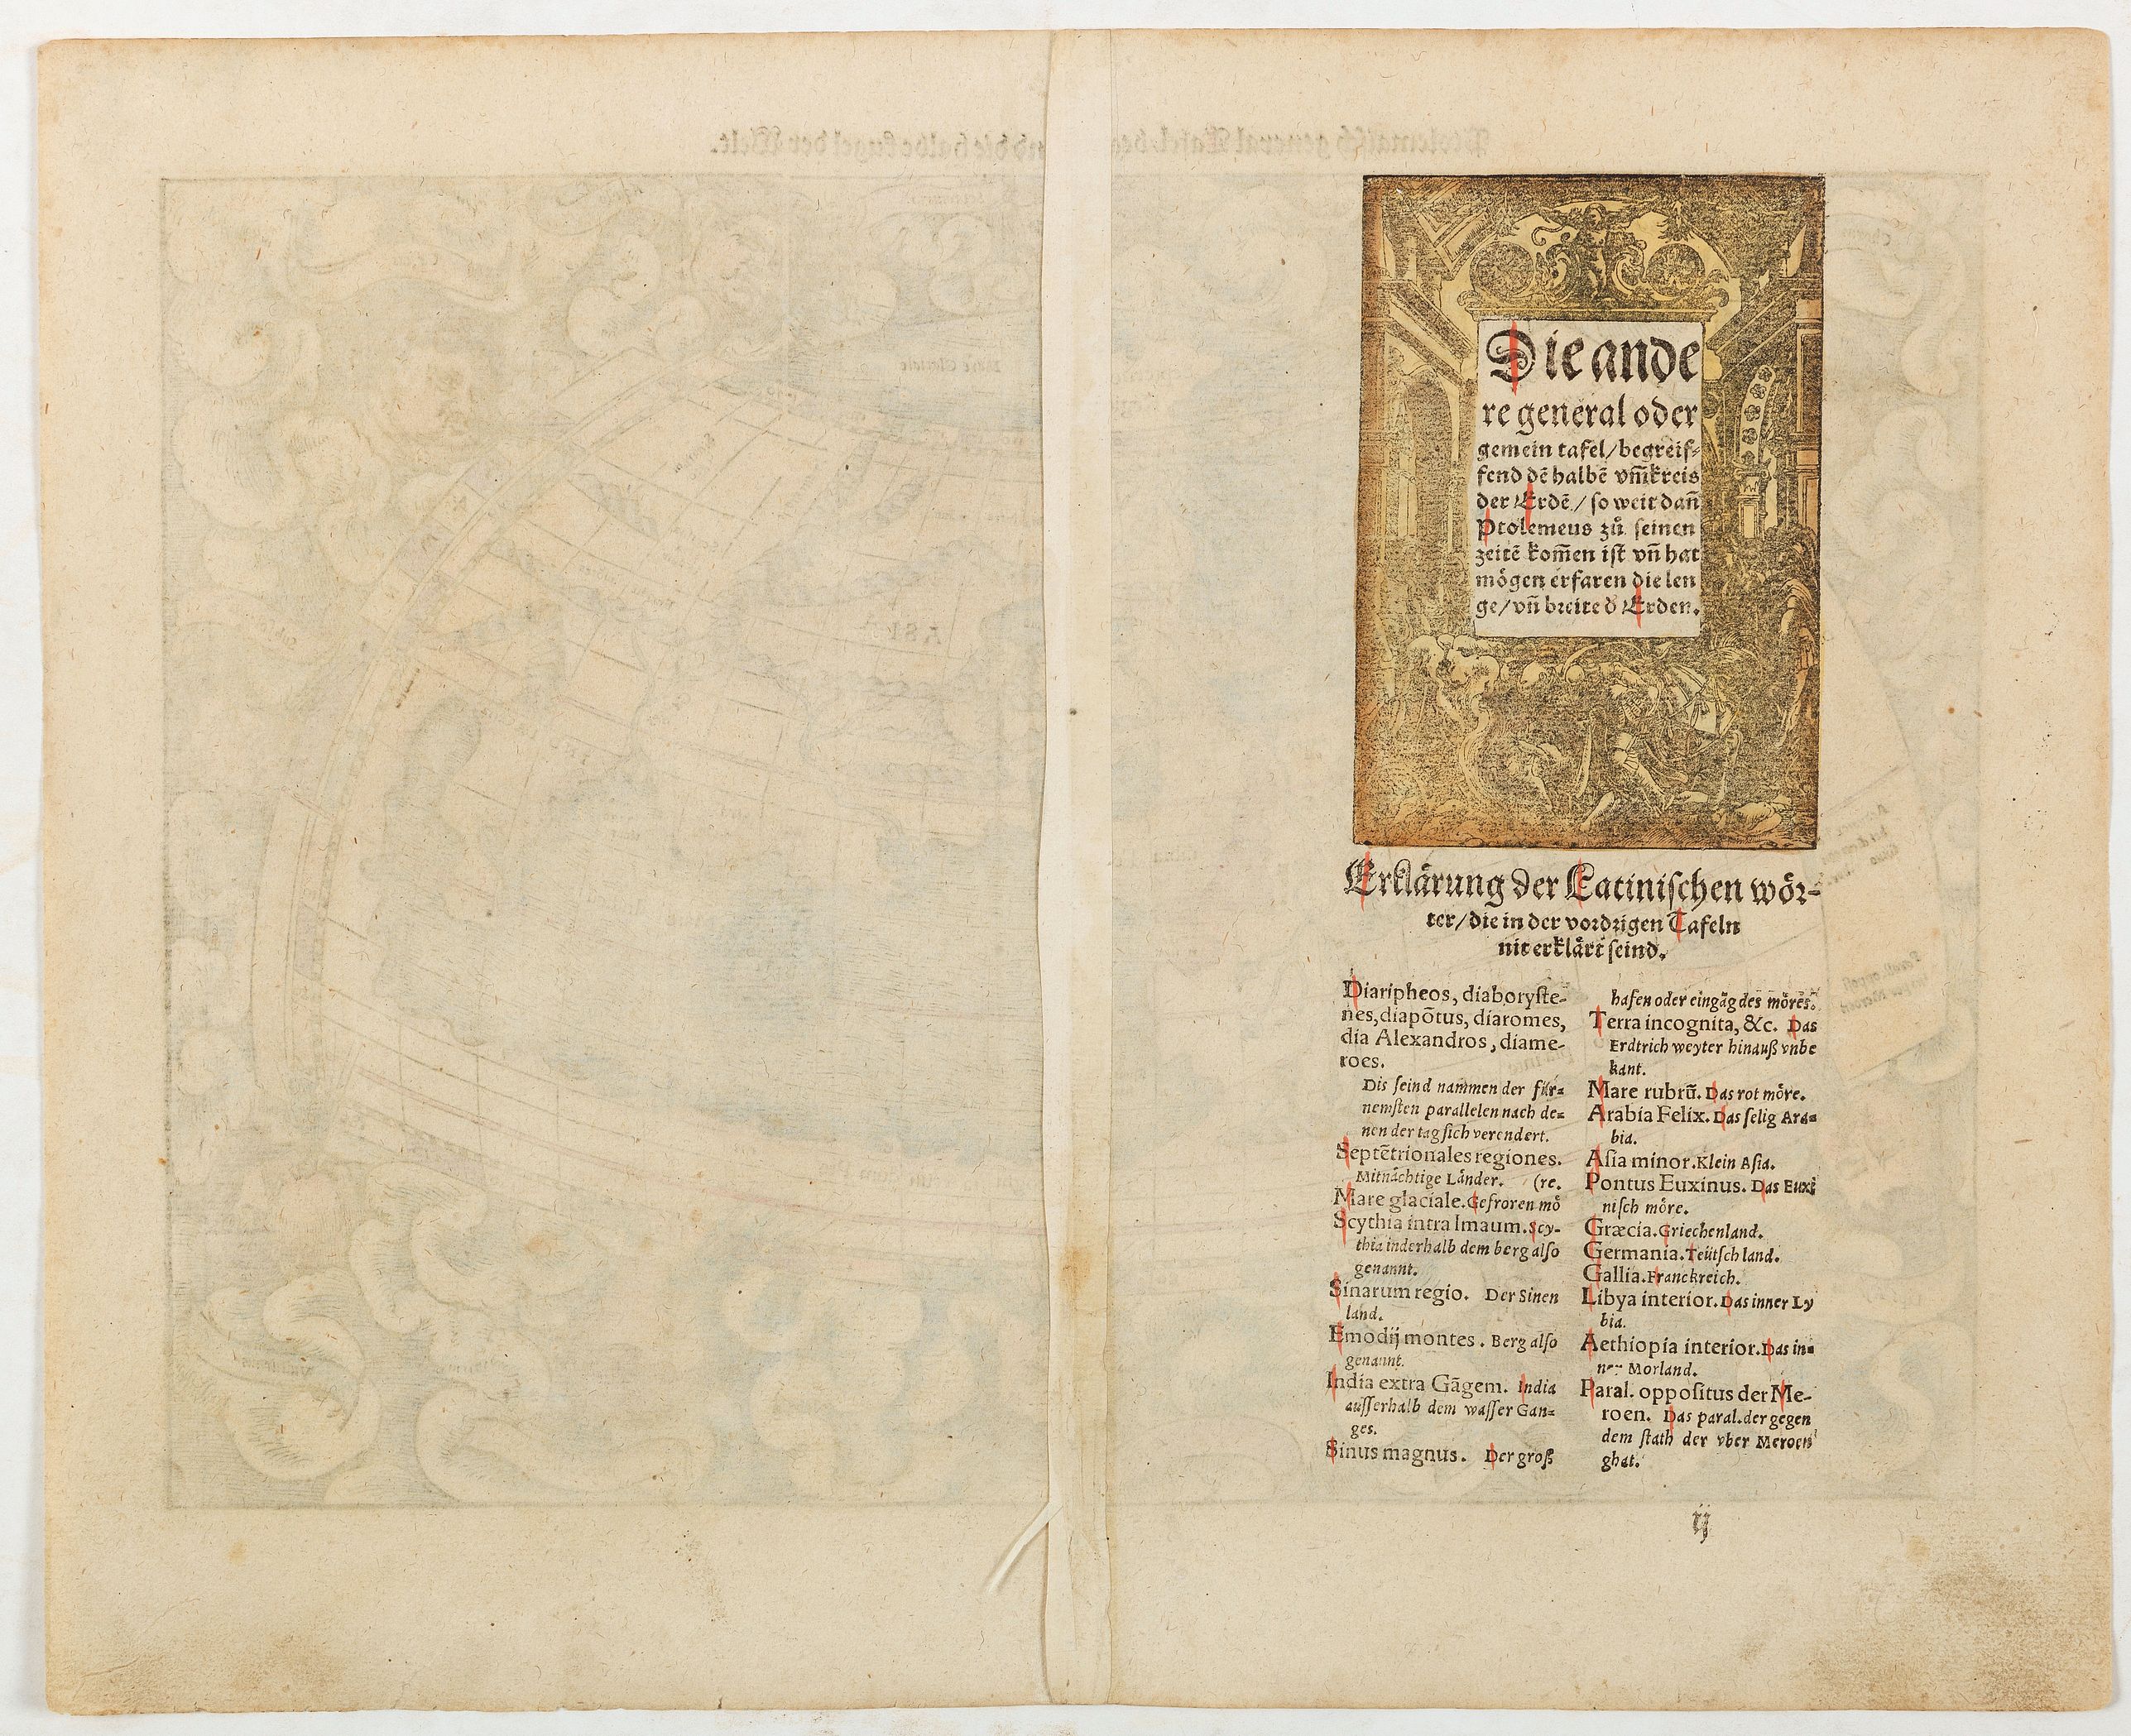 Die ande
re general oder
gemein tafel/begreif⸗
fend dē halbē vm̄kreis
der Erdē/ so weit dañ
Ptolemeus zů seinen
zeitē kom̄en ist vñ hat
mögen erfaren die len
ge/vñ breite d Erden.
Erklärung der Latinischen wör⸗
ter/die in der vordrigen Tafeln
nit erklärt seind.
Diaripheos, diaboryſte-
nes, diapōtus, diaromes,
dia Alexandros, diame-
roes.
Dis ſeind nammen der für⸗
nemſten parallelen nach de⸗
nen der tag ſich verendert.
Septētrionales regiones.
Mitnächtige Länder. (re.
Mare glaciale. Gefroren mö
Scythia intra Imaum. Scy-
thia inderhalb dem berg alſo
genannt.
Sinarum regio. Der Sinen
land.
Emodij montes. Berg alſo
genannt.
India extra Gāgem. India
auſſerhalb dem waſſer Gan⸗
ges.
Sinus magnus. Der groß
hafen oder eingāg des möres.
Terra incognita, &c. Das
Erdtrich weyter hinauß vnbe
kant.
Mare rubrū. Das rot möre.
Arabia Felix. Das ſelig Ara⸗
bia.
Aſia minor. Klein Aſia.
Pontus Euxinus. Das Euxi
niſch möre.
Græcia. Griechenland.
Germania. Teütſch land.
Gallia. Franckreich.
Libya interior. Das inner Ly
bia.
Aethiopia interior. Das in⸗
ner Morland.
Paral. oppoſitus der Me-
roen. Das paral. der gegen
dem ſtath der vber Meroen
ghat.
ij